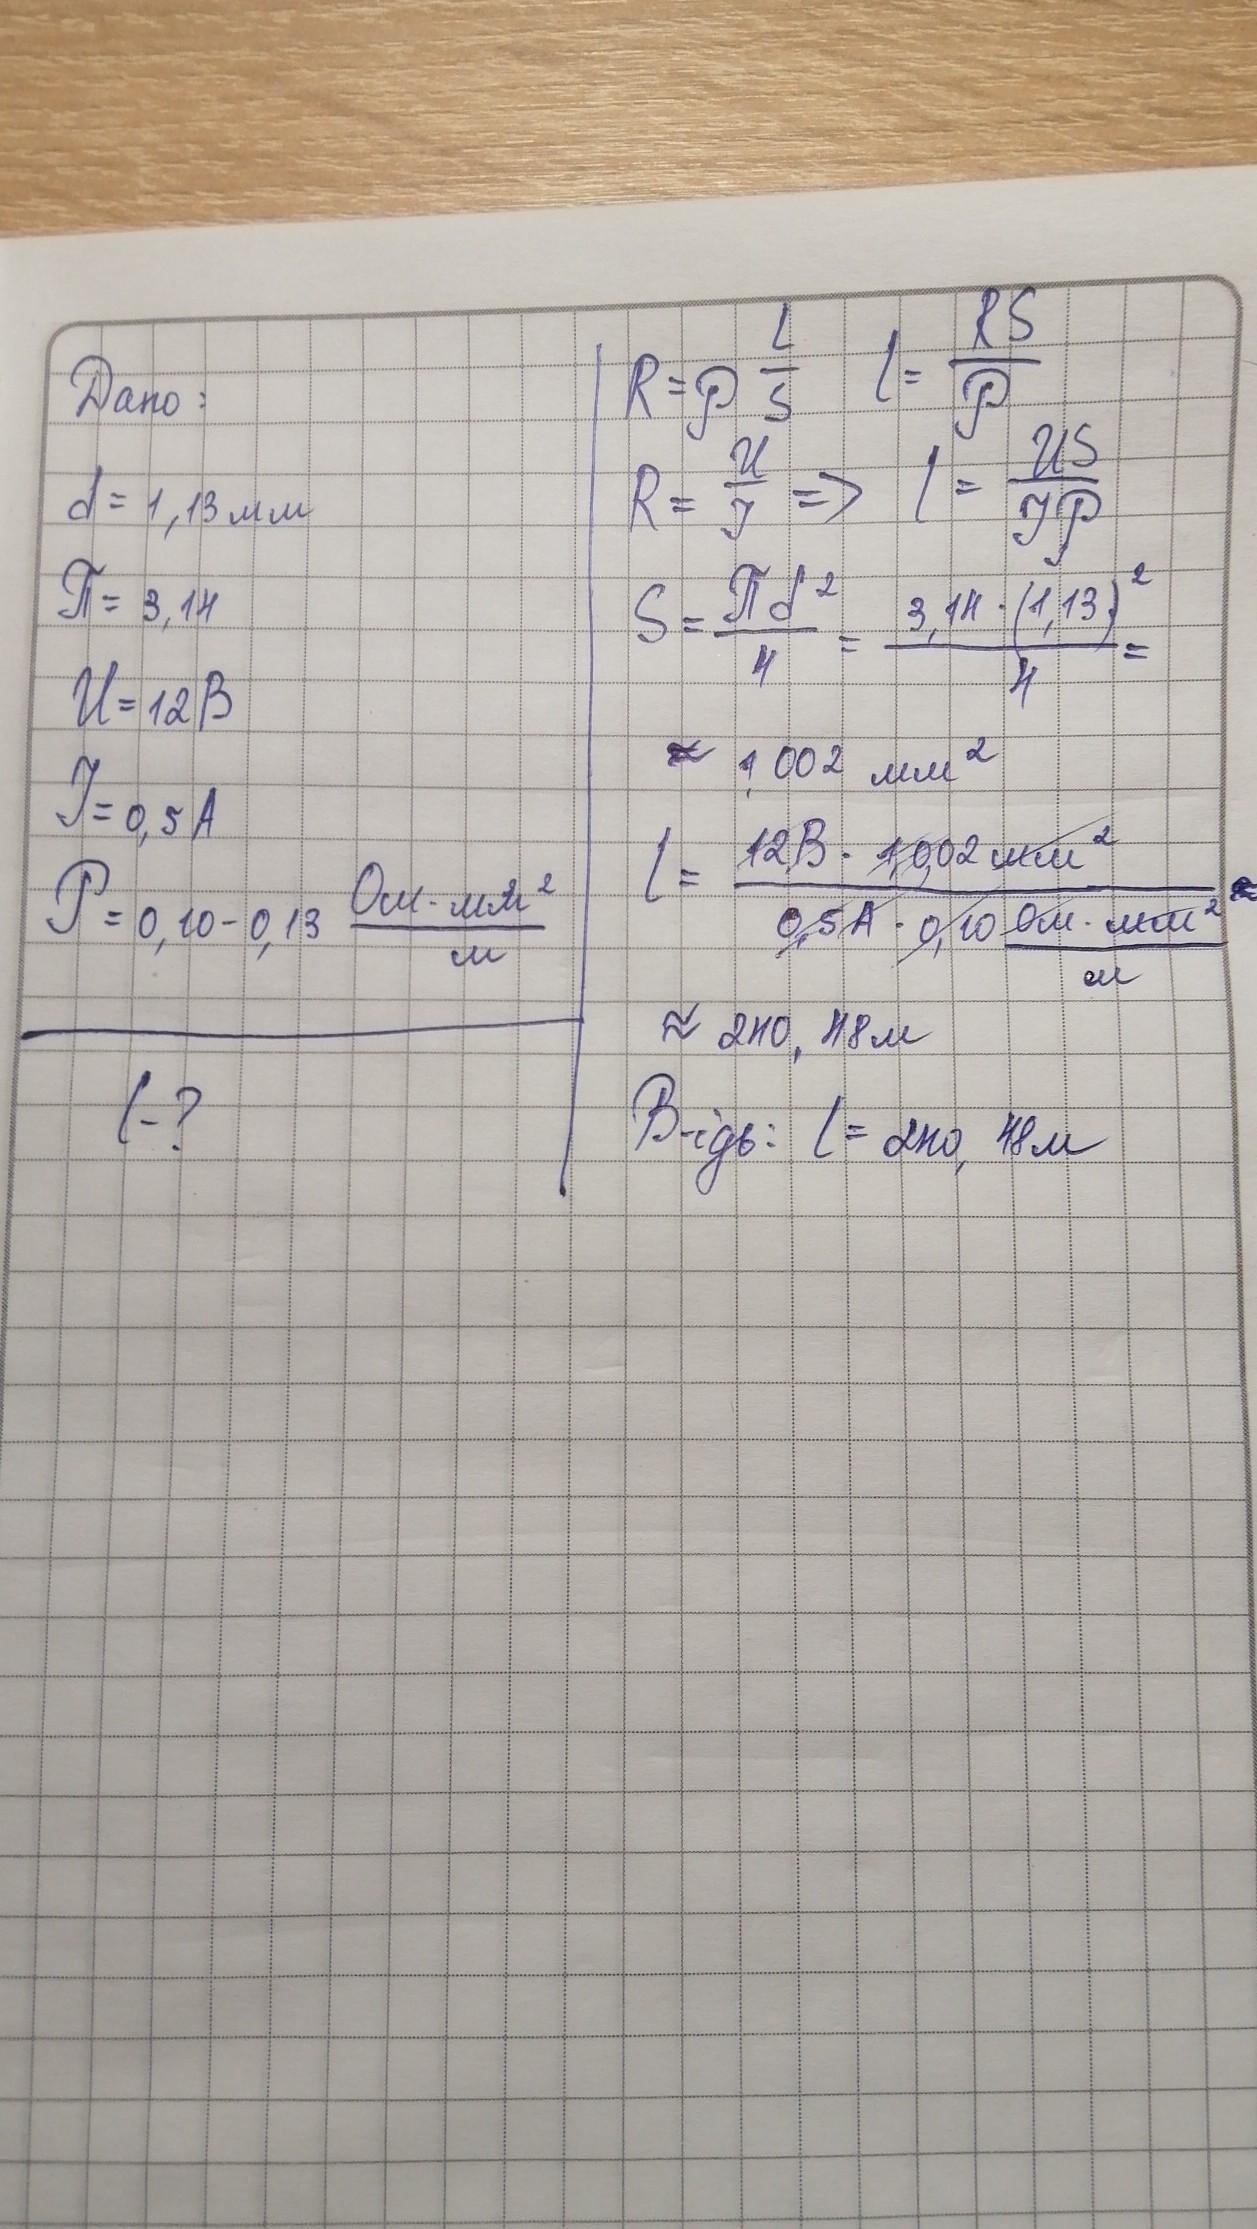 Дано:
d = 1,13 мм
П = 3,14
U = 12 В
I = 0,5 А
ρ = 0,10 - 0,13 Ом · мм² / м
l - ?
R = ρ l/S   l = RS/ρ
R = U/I => l = US/Iρ
S = Пd²/4 = 3,14 · (1,13)²/4 =
≈ 1,002 мм²
l = 12В · 1,002 мм² / 0,5А · 0,10 Ом · мм²/м ≈
≈ 240,48м
В-ідь: l = 240,48м